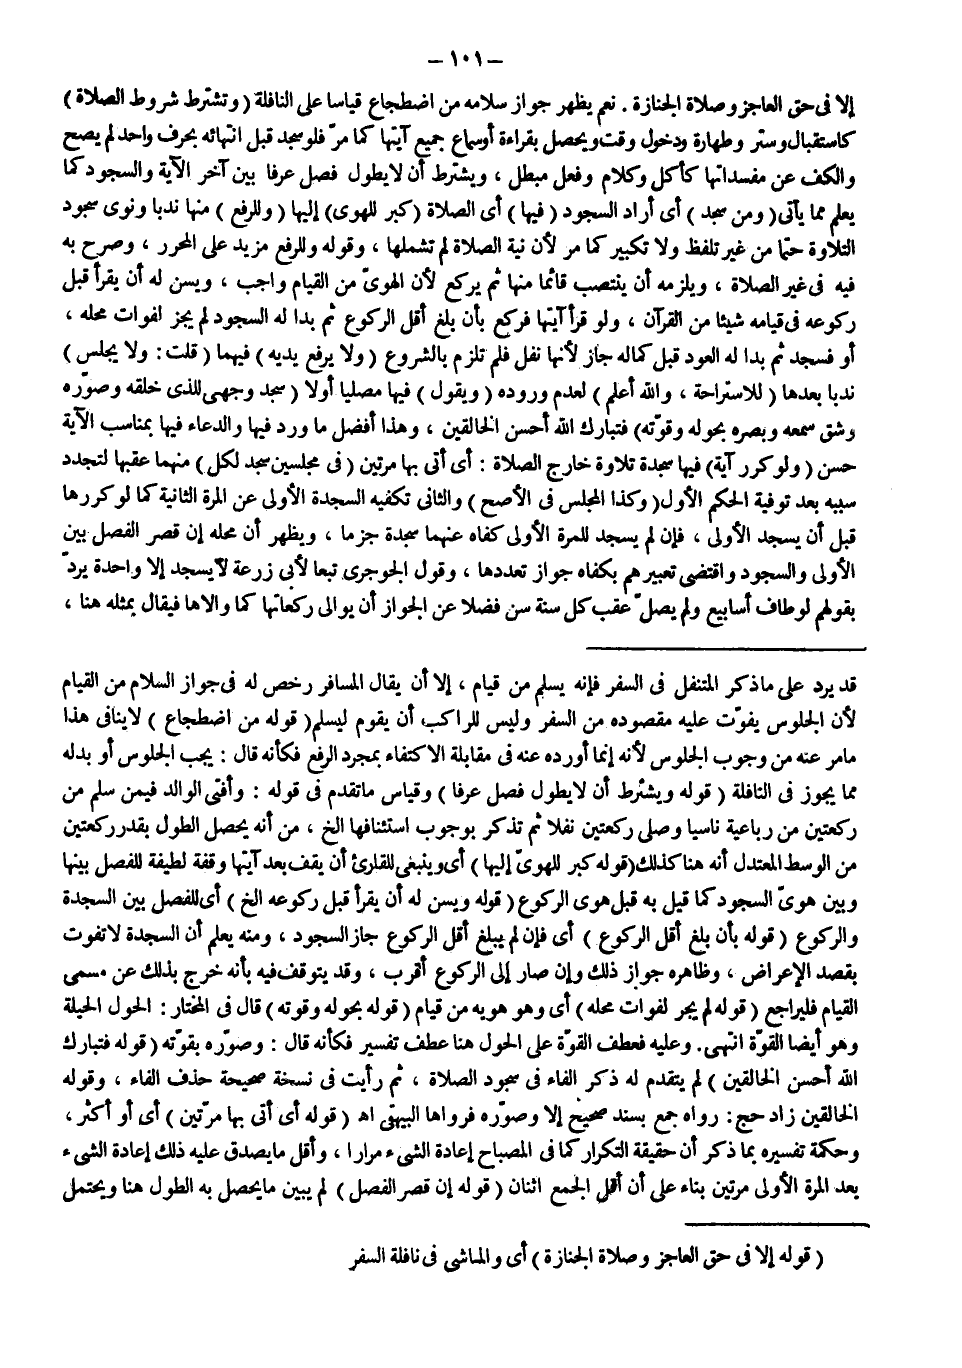 – ١٠١ –
إلا فى حق العاجز وصلاة الجنازة . نعم يظهر جواز سلامه من اضطجاع قياسا على النافلة ( وتشترط شروط الصلاة )
كاستقبال وستر وطهارة ودخول وقت ويحصل بقراءة أوسماع جميع آيتها كما مرّ فلو سجد قبل انتهائه بحرف واحد لم يصح
والكف عن مفسداتها كأكل وكلام وفعل مبطل ، ويشترط أن لايطول فصل عرفا بين آخر الآية والسجود كما
يعلم مما يأتى ( ومن سجد ) أى أراد السجود ( فيها ) أى الصلاة ( كبر للهوى ) إليها ( وللرفع ) منها ندبا ونوى سجود
التلاوة حتما من غير تلفظ ولا تكبير كما مر لأن نية الصلاة لم تشملها ، وقوله وللرفع مزيد على المحرر ، وصرح به
فيه فى غير الصلاة ، ويلزمه أن ينتصب قائما منها ثم يركع لأن الهوىّ من القيام واجب ، ويسن له أن يقرأ قبل
ركوعه فى قيامه شيئا من القرآن ، ولو قرأ آيتها فركع بأن بلغ أقل الركوع ثم بدا له السجود لم يجز لفوات محله ،
أو فسجد ثم بدا له العود قبل كماله جاز لأنها نفل فلم تلزم بالشروع ( ولا يرفع يديه ) فيهما ( قلت : ولا يجلس )
ندبا بعدها ( للاستراحة ، والله أعلم ) لعدم وروده ( ويقول ) فيها مصليا أولا ( سجد وجهى للذى خلقه وصوّره
وشق سمعه وبصره بحوله وقوّته ) فتبارك الله أحسن الخالقين ، وهذا أفضل ما ورد فيها والدعاء فيها بمناسب الآية
حسن ( ولو كرر آية ) فيها سجدة تلاوة خارج الصلاة : أى أتى بها مرتين ( فى مجلسين سجد لكل ) منهما عقبها لتجدد
سببه بعد توفية الحكم الأول ( وكذا المجلس فى الأصح ) والثانى تكفيه السجدة الأولى عن المرة الثانية كما لو كررها
قبل أن يسجد الأولى ، فإن لم يسجد للمرة الأولى كفاه عنهما سجدة جزما ، ويظهر أن محله إن قصر الفصل بين
الأولى والسجود واقتضى تعبيرهم بكفاه جواز تعددها ، وقول الجوجرى تبعا لأبى زرعة لايسجد إلا واحدة يردّ
بقولهم لوطاف أسابيع ولم يصلّ عقب كل سنة سن فضلا عن الجواز أن يوالى ركعاتها كما والاها فيقال بمثله هنا ،
قد يرد على ماذكر المتنفل فى السفر فإنه يسلم من قيام ، إلا أن يقال المسافر رخص له فى جواز السلام من القيام
لأن الجلوس يفوّت عليه مقصوده من السفر وليس للراكب أن يقوم ليسلم ( قوله من اضطجاع ) لاينافى هذا
مامر عنه من وجوب الجلوس لأنه إنما أورده عنه فى مقابلة الاكتفاء بمجرد الرفع فكأنه قال : يجب الجلوس أو بدله
مما يجوز فى النافلة ( قوله ويشترط أن لايطول فصل عرفا ) وقياس ماتقدم فى قوله : وأفتى الوالد فيمن سلم من
ركعتين من رباعية ناسيا وصلى ركعتين نفلا ثم تذكر بوجوب استئنافها الخ ، من أنه يحصل الطول بقدر ركعتين
من الوسط المعتدل أنه هنا كذلك ( قوله كبر للهوىّ إليها ) أى وينبغى للقارئ أن يقف بعد آيتها وقفة لطيفة للفصل بينها
وبين هوىّ السجود كما قيل به قبل هوى الركوع ( قوله ويسن له أن يقرأ قبل ركوعه الخ ) أى للفصل بين السجدة
والركوع ( قوله بأن بلغ أقل الركوع ) أى فإن لم يبلغ أقل الركوع جاز السجود ، ومنه يعلم أن السجدة لاتفوت
بقصد الإعراض ، وظاهره جواز ذلك وإن صار إلى الركوع أقرب ، وقد يتوقف فيه بأنه خرج بذلك عن مسمى
القيام فليراجع ( قوله لم يجز لفوات محله ) أى وهو هويه من قيام ( قوله بحوله وقوته ) قال فى المختار : الحول الحيلة
وهو أيضا القوّة انتهى. وعليه فعطف القوّة على الحول هنا عطف تفسير فكأنه قال : وصوّره بقوّته ( قوله فتبارك
الله أحسن الخالقين ) لم يتقدم له ذكر الفاء فى سجود الصلاة ، ثم رأيت فى نسخة صحيحة حذف الفاء ، وقوله
الخالقين زاد حج : رواه جمع بسند صحيح إلا وصوّره فرواها البيهقى اه ( قوله أى أتى بها مرّتين ) أى أو أكثر ،
وحكمة تفسيره بما ذكر أن حقيقة التكرار كما فى المصباح إعادة الشىء مرارا ، وأقل مايصدق عليه ذلك إعادة الشىء
بعد المرة الأولى مرتين بناء على أن أقل الجمع اثنان ( قوله إن قصر الفصل ) لم يبين مايحصل به الطول هنا ويحتمل
( قوله إلا فى حق العاجز وصلاة الجنازة ) أى والماشى فى نافلة السفر